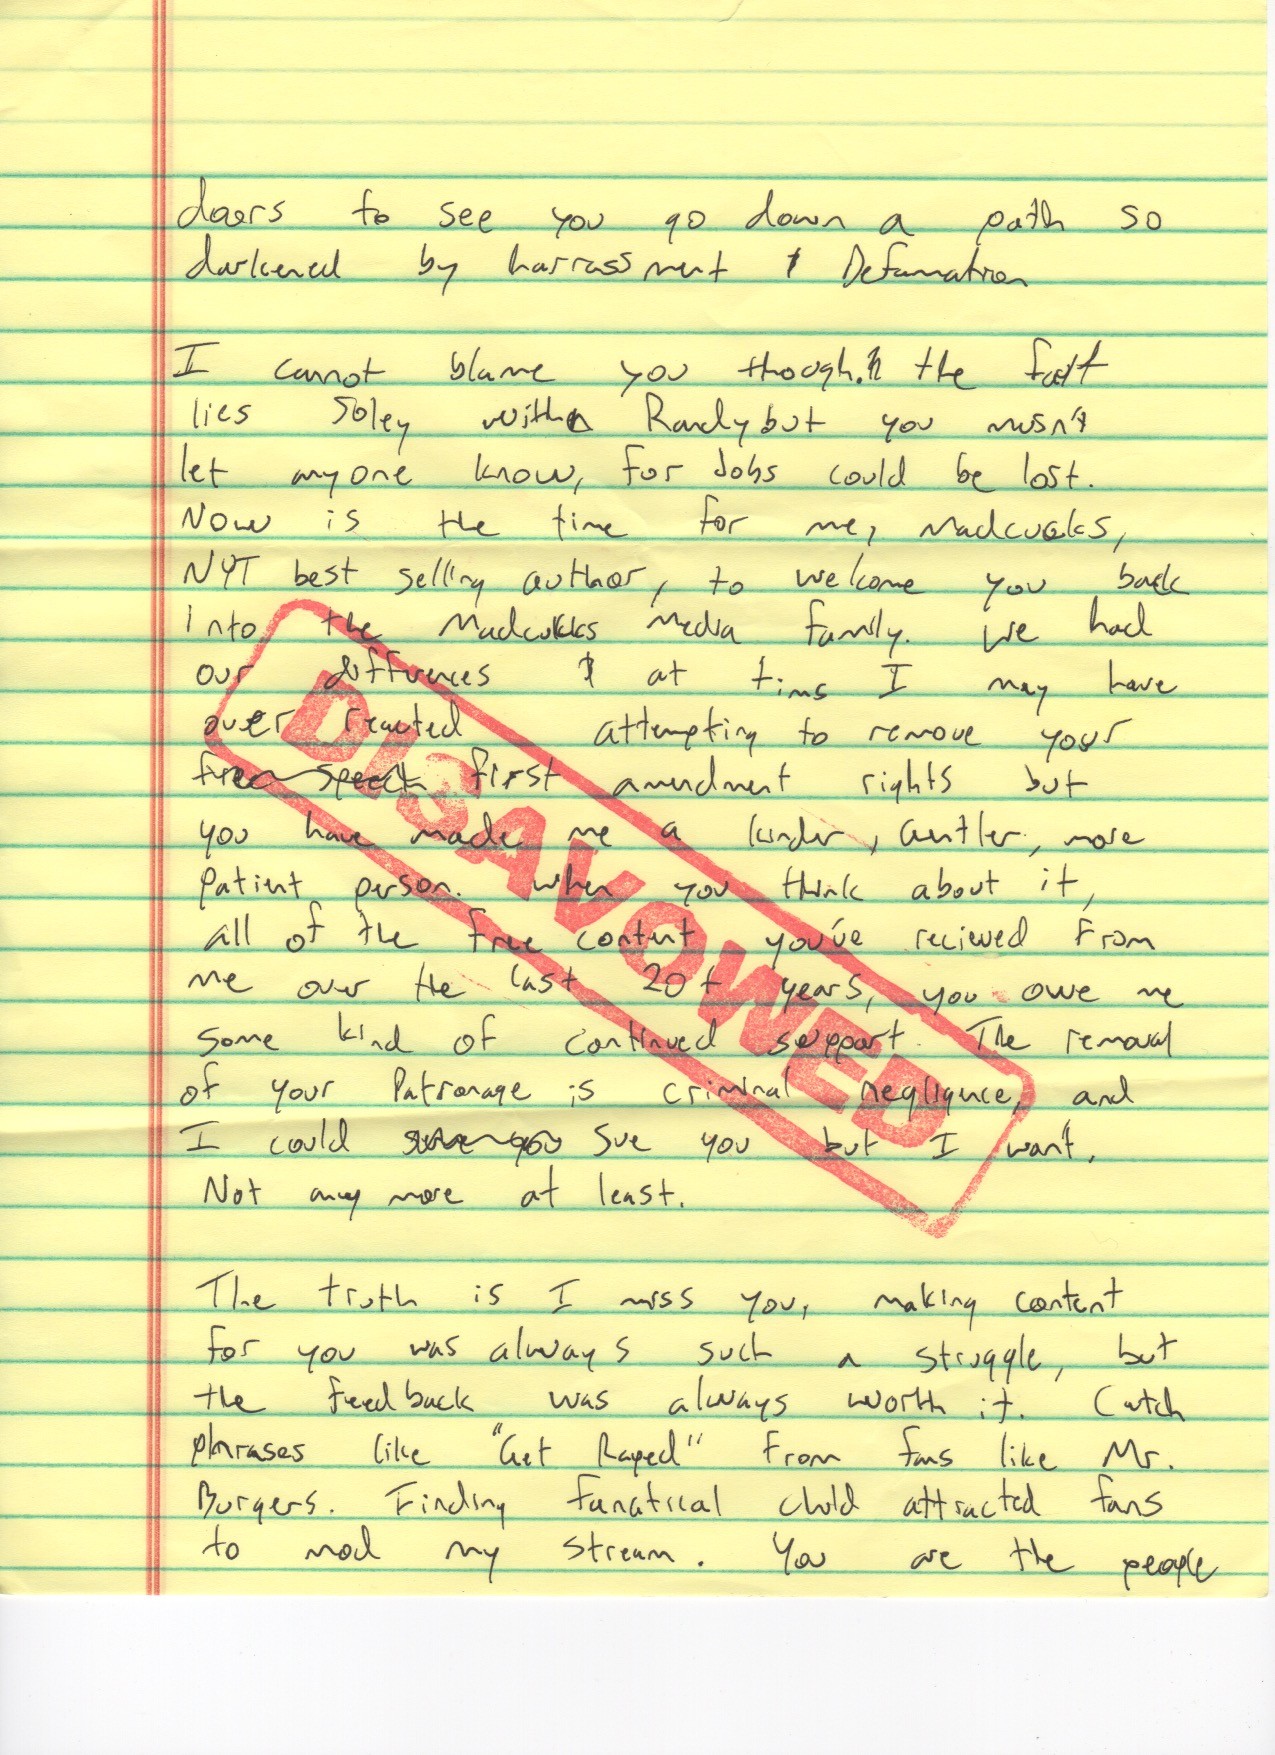 doors to see you go down a path so
darkened by harrassment & Defamation
I cannot blame you though. the falt
lies Soley with Randy but you musn't
let anyone know, for Jobs could be lost.
Now is the time for me, Madcucks,
NYT best selling author, to welcome you back
into the Madcukks Media family. We had
our diffrences & at tims I may have
over reacted attempting to remove your
free speech first amendment rights but
you have made me a kinder, Gentler, more
patient person. When you think about it,
all of the free content you've recieved From
me over the last 20+ years, you owe me
some kind of continued support. The removal
of your Patronage is criminal negligence, and
I could sue you but I wont.
Not any more at least.
The truth is I miss you, making content
for you was always such a struggle, but
the feedback was always worth it. Catch
phrases like "Get Raped" From fans like Mr.
Burgers. Finding fanatical child attracted fans
to mod my stream. You are the people
DISAVOWED